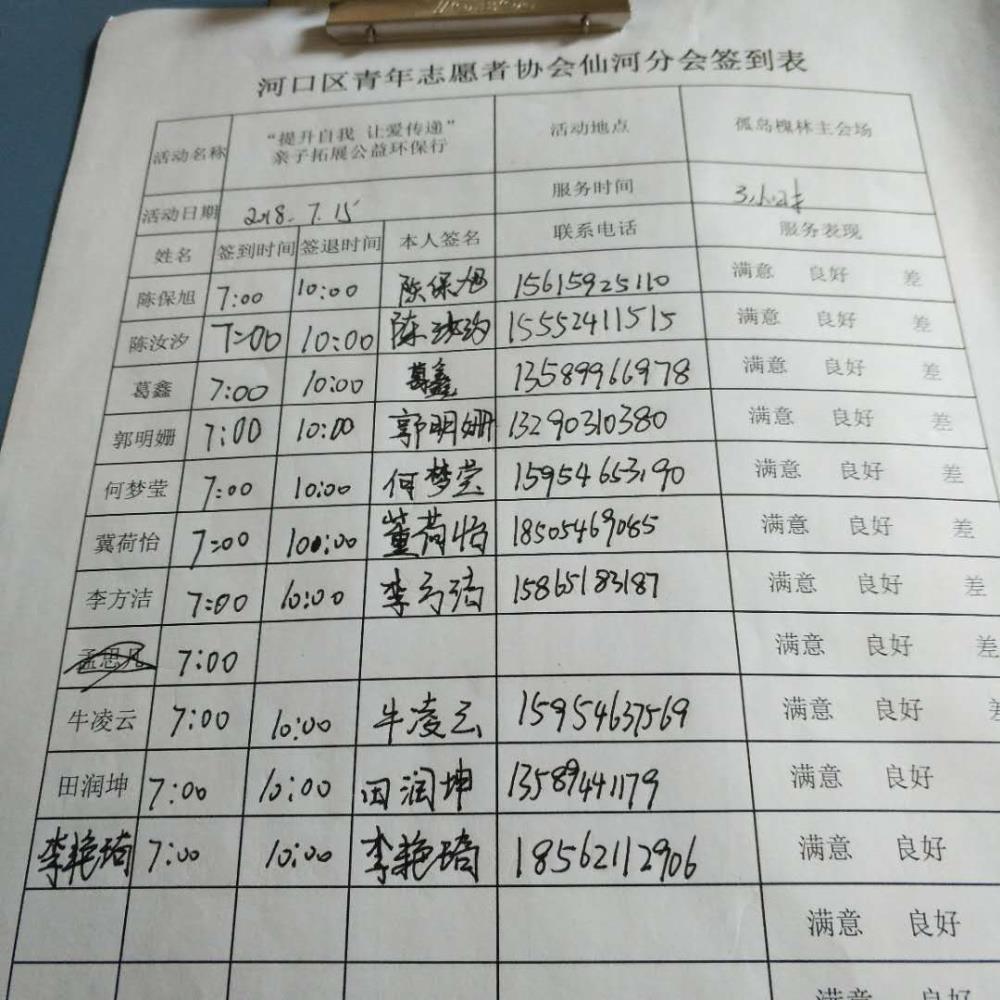 河口区青年志愿者协会仙河分会签到表
活动名称 “提升自我 让爱传递” 活动地点 孤岛槐林主会场
亲子拓展公益环保行
活动日期 2018.7.15 服务时间
姓名 签到时间 签退时间 本人签名 联系电话 服务表现
陈保旭 7:00 10:00 陈保旭 15615925110 满意 良好 差
陈汝汐 7:00 10:00 陈汝汐 15552411515 满意 良好 差
葛鑫 7:00 10:00 葛鑫 13589966978 满意 良好 差
郭明姗 7:00 10:00 郭明姗 13290310380 满意 良好 差
何梦莹 7:00 10:00 何梦莹 15954653190 满意 良好 差
冀荷怡 7:00 10:00 荷怡 18505469085 满意 良好 差
李方洁 7:00 10:00 李 15865183187 满意 良好 差
孟思凡 7:00 满意 良好 差
牛凌云 7:00 10:00 牛凌云 15954637569 满意 良好 差
田润坤 7:00 10:00 田润坤 13589441179 满意 良好
李艳琦 7:00 10:00 李艳琦 18562112906 满意 良好
满意 良好
满意 良好